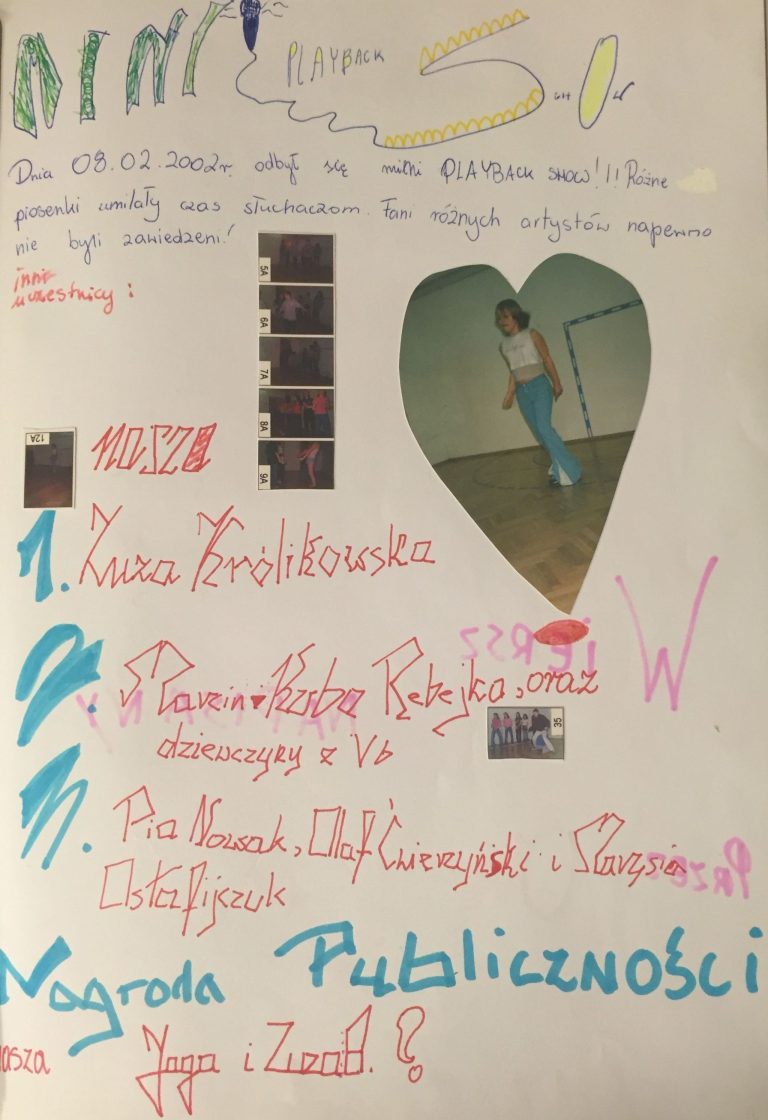 MINI PLAYBACK SHOW
Dnia 08.02.2002r. odbył się mini PLAYBACK SHOW!!! Różne
piosenki umilały czas słuchaczom. Fani różnych artystów napewno
nie byli zawiedzeni!
inni
uczestnicy:
5A
6A
7A
8A
9A
12A
nasza
1. Zuza Królikowska
2. Marcin Rębejko, oraz
35
dziewczyny z Vb
3. Pia Nowak, Olaf Ćwierzyński i Marysia
Ostafijczuk
Nagroda Publiczności
nasza Jaga i